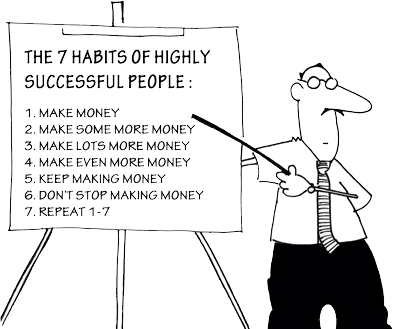 THE 7 HABITS OF HIGHLY
SUCCESSFUL PEOPLE :
1. MAKE MONEY
2. MAKE SOME MORE MONEY
3. MAKE LOTS MORE MONEY
4. MAKE EVEN MORE MONEY
5. KEEP MAKING MONEY
6. DON'T STOP MAKING MONEY
7. REPEAT 1-7